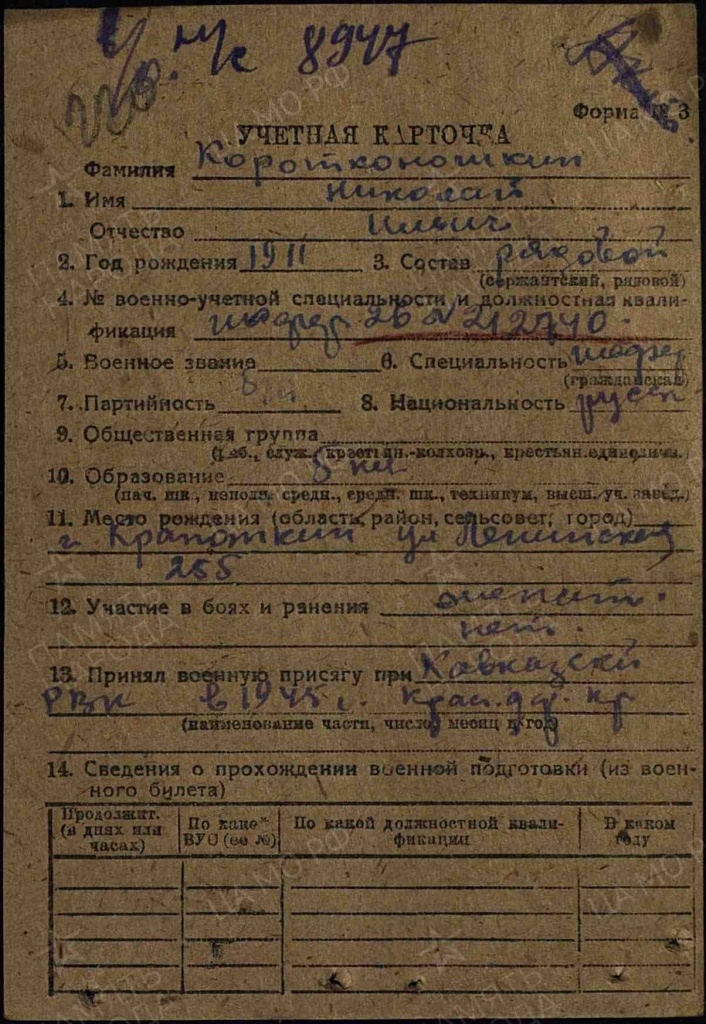 8947
Форма № 3
УЧЕТНАЯ КАРТОЧКА
Фамилия Коротконошкин
1. Имя Николай
Отчество Ильич
2. Год рождения 1911 3. Состав рядовой
(сержантский, рядовой)
4. № военно-учетной специальности и должностная квали-
фикация шофер 26 212740.
5. Военное звание 6. Специальность шофер
(гражданская)
7. Партийность б/п 8. Национальность русск
9. Общественная группа
(раб., служ., крестьян.-колхозн., крестьян.единоличн.)
10. Образование 5 кл
(нач. шк., неполн. средн., средн. шк., техникум, высш. уч. завед.)
11. Место рождения (область, район, сельсовет, город)
г. Кропоткин ул Ленинская
255
12. Участие в боях и ранения
нет.
13. Принял военную присягу при Кавказский
РВК в 1945 г. Крас. кр
(наименование части, число, месяц и год)
14. Сведения о прохождении военной подготовки (из воен-
ного билета)
Продолжит. (в днях или часах) По какой ВУС (ее №) По какой должностной квали-фикации В каком году